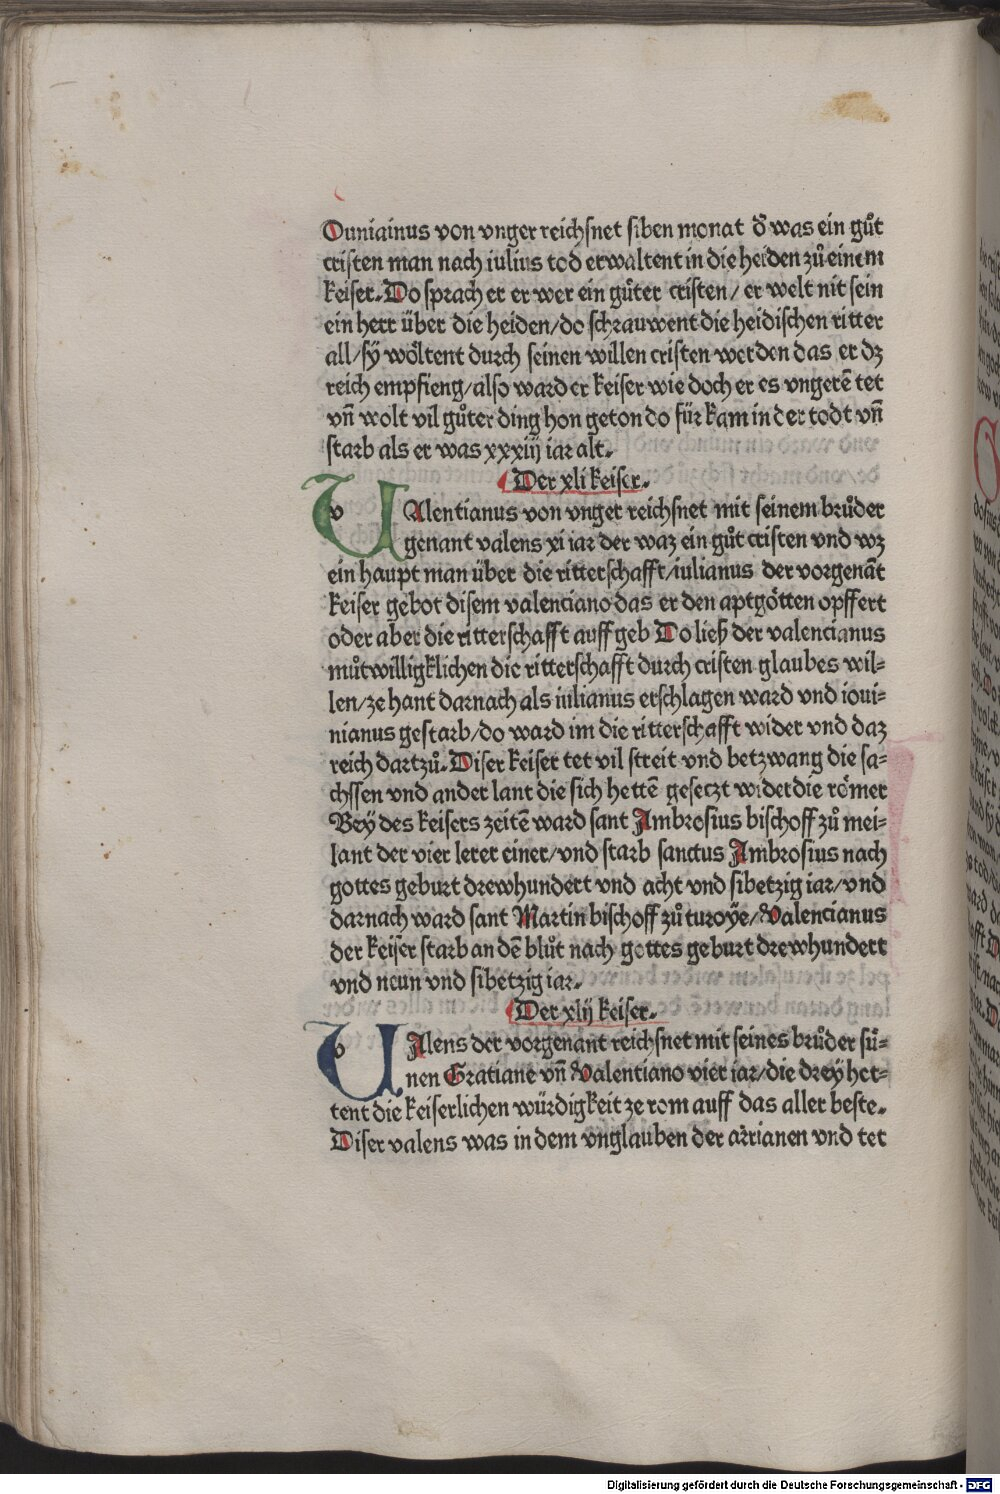 Ouniainus von vnger reichsnet siben monat d̕ was ein gůt
cristen man nach iulius tod erwaltent in die heiden zů einem
keiser. Do sprach er er wer ein gůter cristen/ er welt nit sein
ein herr über die heiden/do schrauwent die heidischen ritter
all/sÿ wöltent durch seinen willen cristen werden das er dz
reich empfieng/also ward er keiser wie doch er es vngerē tet
vn̄ wolt vil gůter ding hon geton do für kam in der todt vn̄
starb als er was xxxiij iar alt.
Der xli keiser.
v Alentianus von vnger reichsnet mit seinem brůder
genant valens xi iar der waz ein gůt cristen vnd wz
ein haupt man über die ritterschafft/iulianus der vorgenāt
keiser gebot disem valenciano das er den aptgötten opffert
oder aber die ritterschafft auff geb Do ließ der valencianus
můtwilligklichen die ritterschafft durch cristen glaubes wil=
len/ze hant darnach als iulianus erschlagen ward vnd ioui=
nianus gestarb/do ward im die ritterschafft wider vnd daz
reich dartzů. Diser keiser tet vil streit vnd betzwang die sa=
chssen vnd ander lant die sich hettē gesetzt wider die römer
Bey des keisers zeitē ward sant Ambrosius bischoff zů mei=
lant der vier lerer einer/vnd starb sanctus Ambrosius nach
gottes geburt drewhundert vnd acht vnd sibetzig iar/vnd
darnach ward sant Martin bischoff zů turoÿe/Valencianus
der keiser starb an dē blůt nach gottes geburt drewhundert
vnd neun vnd sibetzig iar.
Der xlij keiser.
v Alens der vorgenant reichsnet mit seines brůder sü=
nen Gratiane vn̄ Valentiano vier iar/die drey het=
tent die keiserlichen würdigkeit ze rom auff das aller beste.
Diser valens was in dem vnglauben der arrianen vnd tet
Digitalisierung gefördert durch die Deutsche Forschungsgemeinschaft - DFG